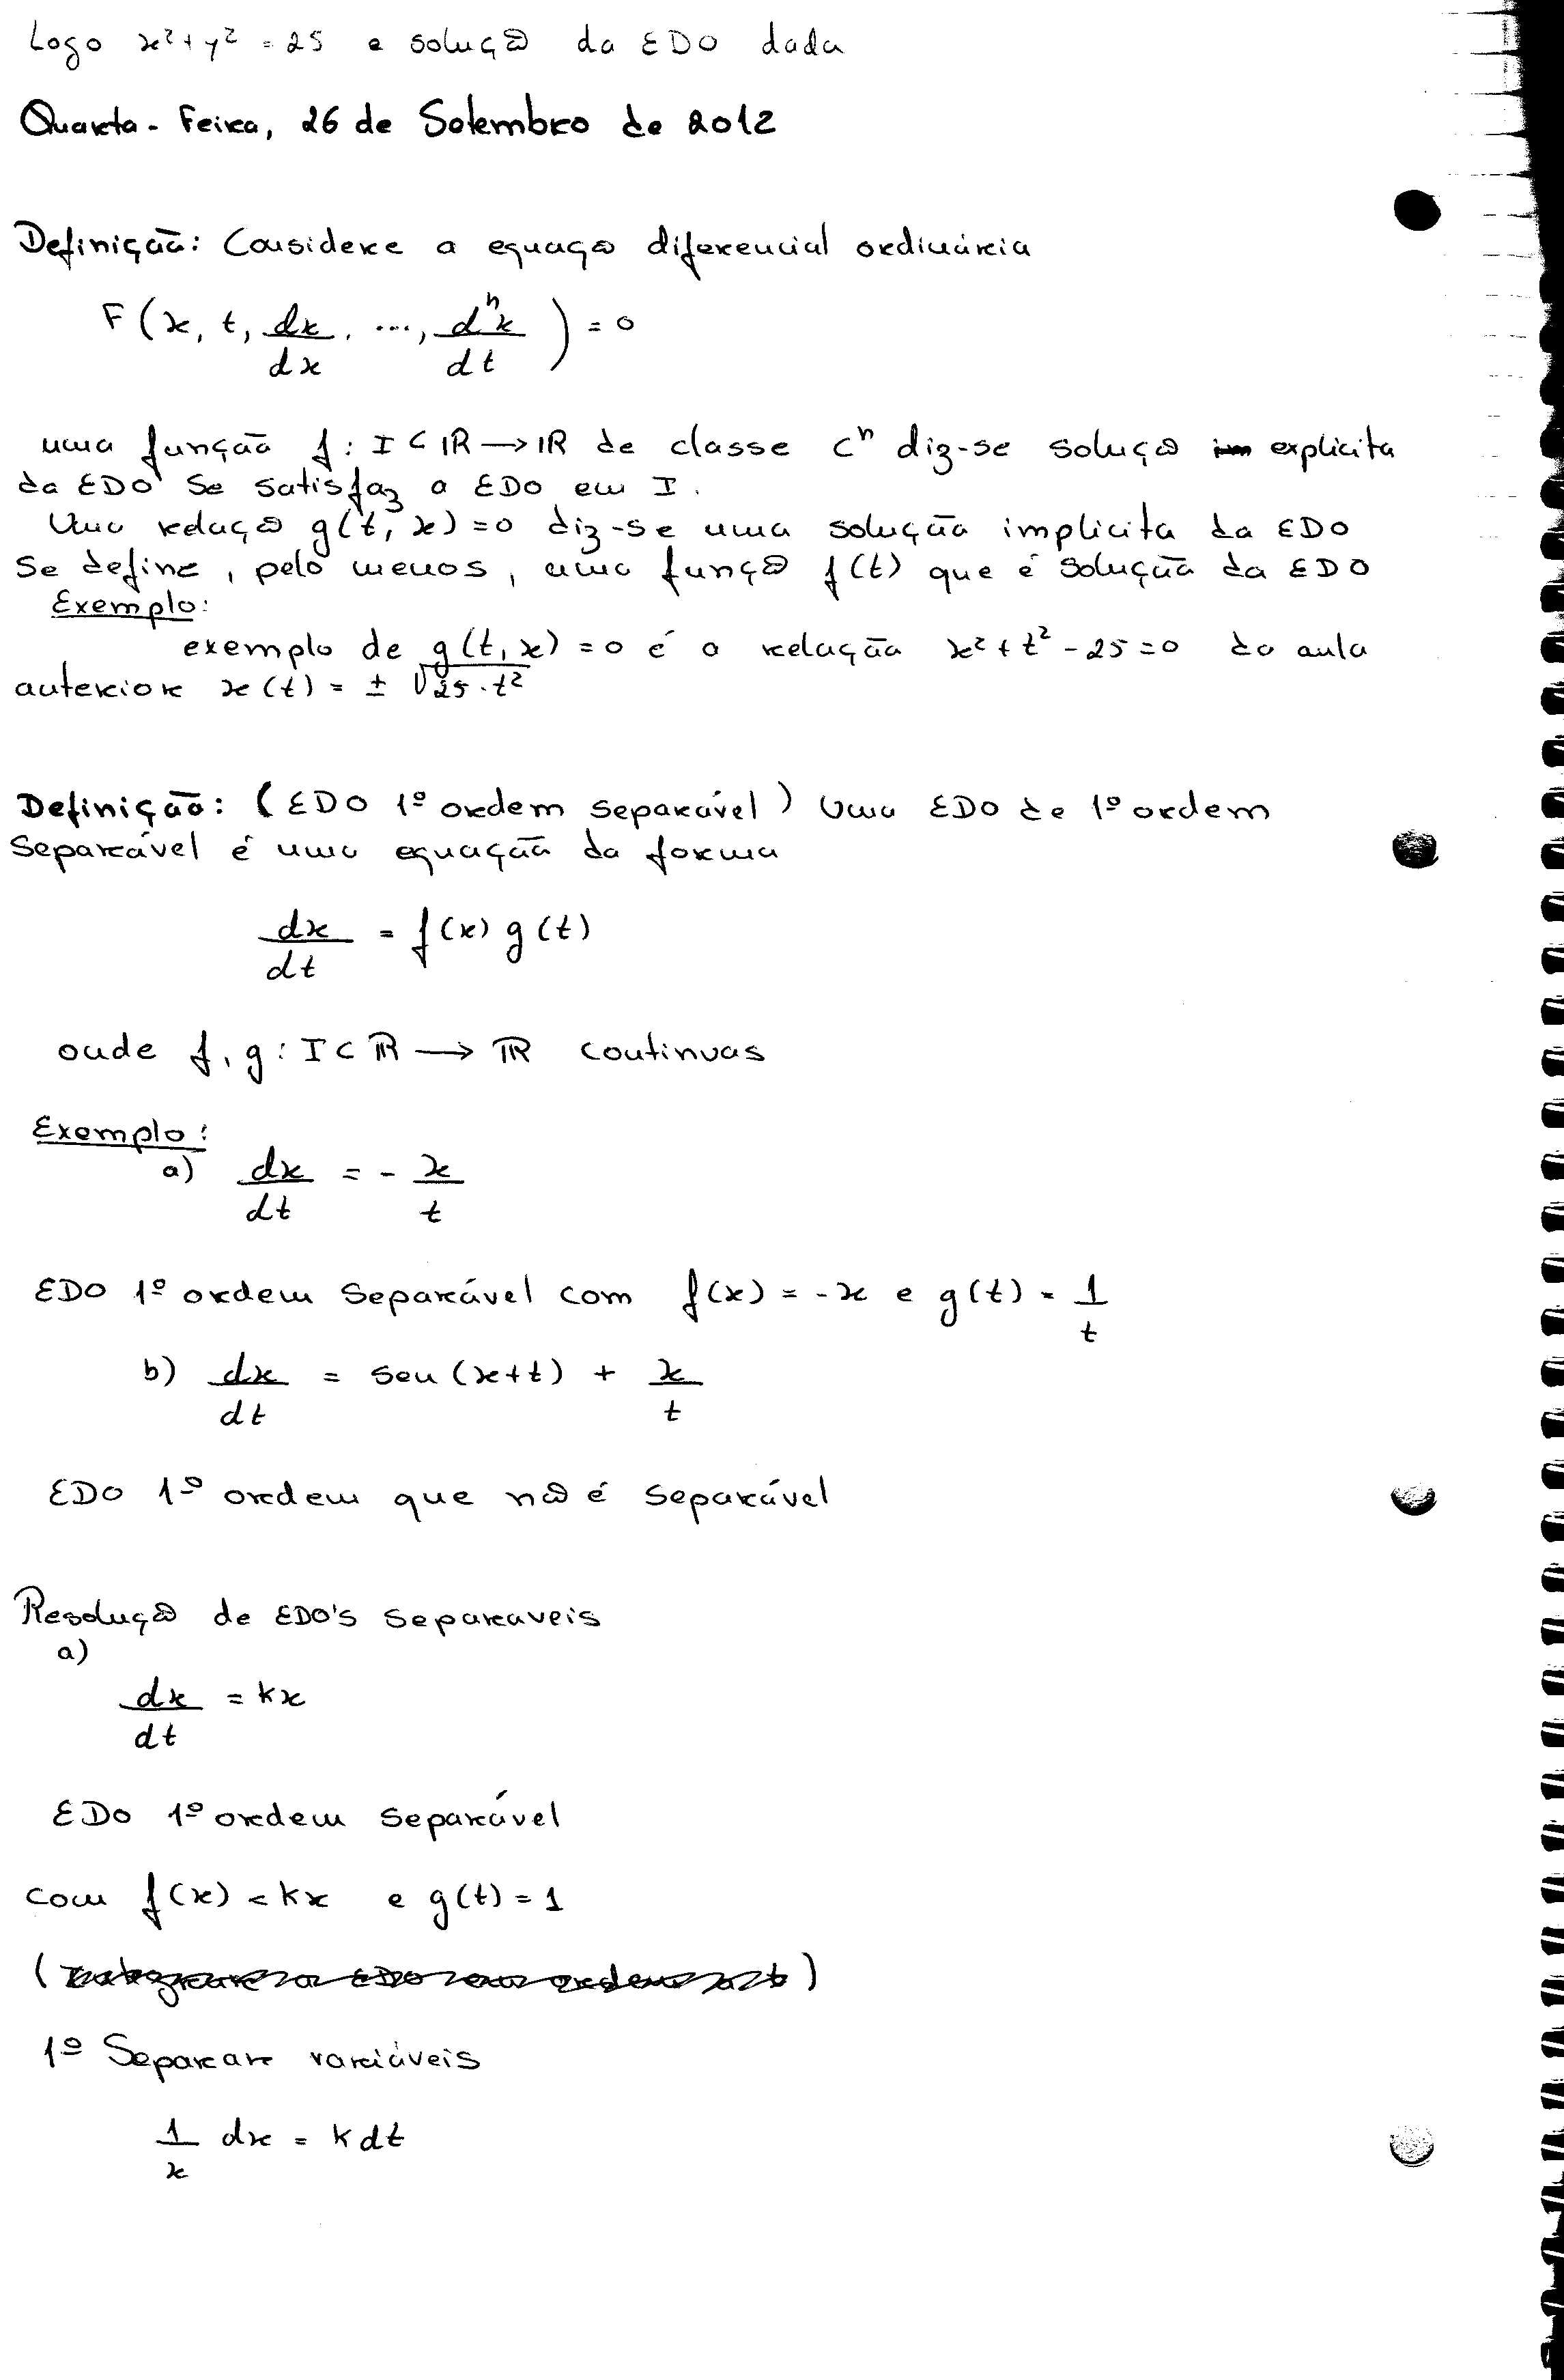 Logo x²+y² = 25 e solução da EDO dada
Quarta-Feira, 26 de Setembro de 2012
Definição: Considere a equação diferencial ordinária
F(x, t, dx/dx, ..., dⁿx/dt) = 0
uma função f: I ⊂ ℝ → ℝ de classe Cⁿ diz-se solução explicita
da EDO se satisfaz a EDO em I.
Uma relação g(t, x) = 0 diz-se uma solução implicita da EDO
se define, pelo menos, uma função f(t) que é solução da EDO
Exemplo:
exemplo de g(t, x) = 0 é a relação x² + t² - 25 = 0 da aula
anterior x(t) = ± √25 - t²
Definição: (EDO 1º ordem separável) Uma EDO de 1º ordem
Separável é uma equação da forma
dx/dt = f(x) g(t)
onde f, g: I ⊂ ℝ → ℝ continuas
Exemplo:
a) dx/dt = - x/t
EDO 1º ordem separável com f(x) = -x e g(t) = 1/t
b) dx/dt = sen (x+t) + x/t
EDO 1º ordem que não é separável
Resolução de EDO's separaveis
a)
dx/dt = kx
EDO 1º ordem separável
com f(x) = kx e g(t) = 1
(Integrar a EDO em ordem a t)
1º Separar variáveis
1/x dx = k dt